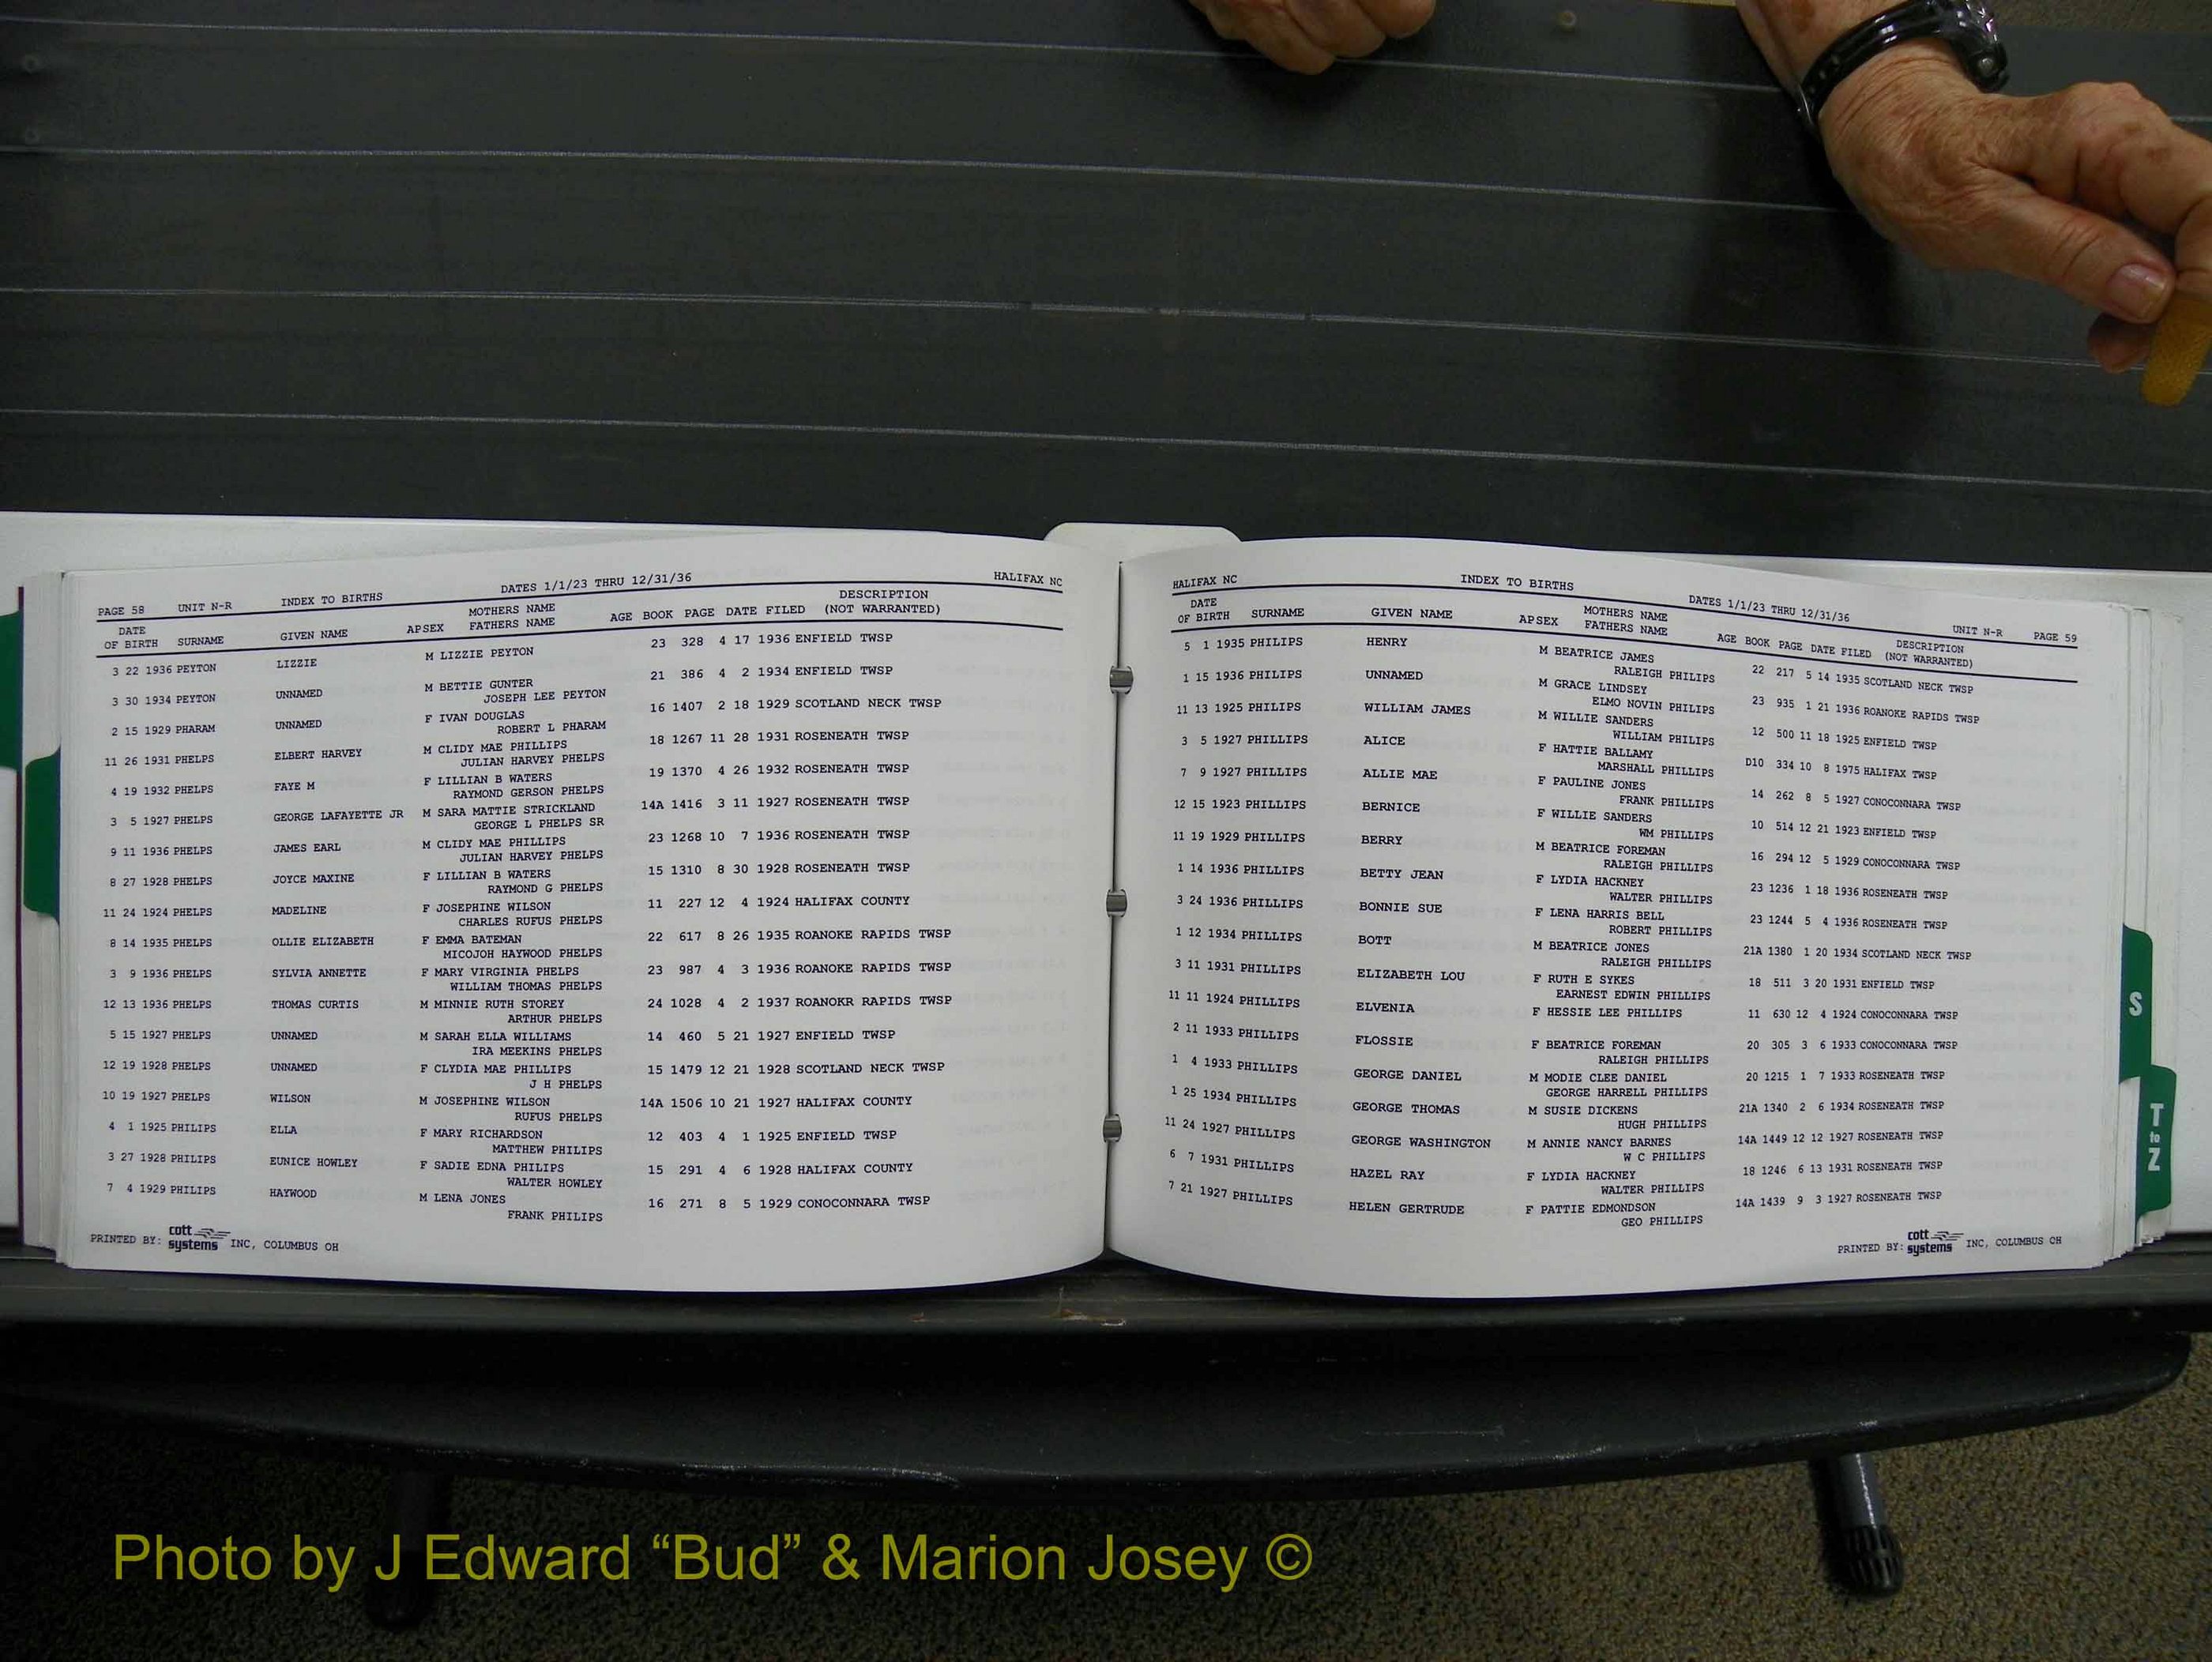 PAGE 58 UNIT N-R INDEX TO BIRTHS DATES 1/1/23 THRU 12/31/36 HALIFAX NC
DATE OF BIRTH SURNAME GIVEN NAME AP SEX MOTHERS NAME FATHERS NAME AGE BOOK PAGE DATE FILED DESCRIPTION (NOT WARRANTED)
3 22 1936 PEYTON LIZZIE M LIZZIE PEYTON 23 328 4 17 1936 ENFIELD TWSP
3 30 1934 PEYTON UNNAMED M BETTIE GUNTER 21 386 4 2 1934 ENFIELD TWSP
JOSEPH LEE PEYTON
2 15 1929 PHARAM UNNAMED F IVAN DOUGLAS 16 1407 2 18 1929 SCOTLAND NECK TWSP
ROBERT L PHARAM
11 26 1931 PHELPS ELBERT HARVEY M CLIDY MAE PHILLIPS 18 1267 11 28 1931 ROSENEATH TWSP
JULIAN HARVEY PHELPS
4 19 1932 PHELPS FAYE M F LILLIAN B WATERS 19 1370 4 26 1932 ROSENEATH TWSP
RAYMOND GERSON PHELPS
3 5 1927 PHELPS GEORGE LAFAYETTE JR M SARA MATTIE STRICKLAND 14A 1416 3 11 1927 ROSENEATH TWSP
GEORGE L PHELPS SR
9 11 1936 PHELPS JAMES EARL M CLIDY MAE PHILLIPS 23 1268 10 7 1936 ROSENEATH TWSP
JULIAN HARVEY PHELPS
8 27 1928 PHELPS JOYCE MAXINE F LILLIAN B WATERS 15 1310 8 30 1928 ROSENEATH TWSP
RAYMOND G PHELPS
11 24 1924 PHELPS MADELINE F JOSEPHINE WILSON 11 227 12 4 1924 HALIFAX COUNTY
CHARLES RUFUS PHELPS
8 14 1935 PHELPS OLLIE ELIZABETH F EMMA BATEMAN 22 617 8 26 1935 ROANOKE RAPIDS TWSP
MICOJOH HAYWOOD PHELPS
3 9 1936 PHELPS SYLVIA ANNETTE F MARY VIRGINIA PHELPS 23 987 4 3 1936 ROANOKE RAPIDS TWSP
WILLIAM THOMAS PHELPS
12 13 1936 PHELPS THOMAS CURTIS M MINNIE RUTH STOREY 24 1028 4 2 1937 ROANOKR RAPIDS TWSP
ARTHUR PHELPS
5 15 1927 PHELPS UNNAMED M SARAH ELLA WILLIAMS 14 460 5 21 1927 ENFIELD TWSP
IRA MEEKINS PHELPS
12 19 1928 PHELPS UNNAMED F CLYDIA MAE PHILLIPS 15 1479 12 21 1928 SCOTLAND NECK TWSP
J H PHELPS
10 19 1927 PHELPS WILSON M JOSEPHINE WILSON 14A 1506 10 21 1927 HALIFAX COUNTY
RUFUS PHELPS
4 1 1925 PHILIPS ELLA F MARY RICHARDSON 12 403 4 1 1925 ENFIELD TWSP
MATTHEW PHILIPS
3 27 1928 PHILIPS EUNICE HOWLEY F SADIE EDNA PHILIPS 15 291 4 6 1928 HALIFAX COUNTY
WALTER HOWLEY
7 4 1929 PHILIPS HAYWOOD M LENA JONES 16 271 8 5 1929 CONOCONNARA TWSP
FRANK PHILIPS
PRINTED BY: cott systems INC, COLUMBUS OH
HALIFAX NC INDEX TO BIRTHS DATES 1/1/23 THRU 12/31/36 UNIT N-R PAGE 59
DATE OF BIRTH SURNAME GIVEN NAME AP SEX MOTHERS NAME FATHERS NAME AGE BOOK PAGE DATE FILED DESCRIPTION (NOT WARRANTED)
5 1 1935 PHILIPS HENRY M BEATRICE JAMES 22 217 5 14 1935 SCOTLAND NECK TWSP
RALEIGH PHILIPS
1 15 1936 PHILIPS UNNAMED M GRACE LINDSEY 23 935 1 21 1936 ROANOKE RAPIDS TWSP
ELMO NOVIN PHILIPS
11 13 1925 PHILIPS WILLIAM JAMES M WILLIE SANDERS 12 500 11 18 1925 ENFIELD TWSP
WILLIAM PHILIPS
3 5 1927 PHILLIPS ALICE F HATTIE BALLAMY D10 334 10 8 1975 HALIFAX TWSP
MARSHALL PHILLIPS
7 9 1927 PHILLIPS ALLIE MAE F PAULINE JONES 14 262 8 5 1927 CONOCONNARA TWSP
FRANK PHILLIPS
12 15 1923 PHILLIPS BERNICE F WILLIE SANDERS 10 514 12 21 1923 ENFIELD TWSP
WM PHILLIPS
11 19 1929 PHILLIPS BERRY M BEATRICE FOREMAN 16 294 12 5 1929 CONOCONNARA TWSP
RALEIGH PHILLIPS
1 14 1936 PHILLIPS BETTY JEAN F LYDIA HACKNEY 23 1236 1 18 1936 ROSENEATH TWSP
WALTER PHILLIPS
3 24 1936 PHILLIPS BONNIE SUE F LENA HARRIS BELL 23 1244 5 4 1936 ROSENEATH TWSP
ROBERT PHILLIPS
1 12 1934 PHILLIPS BOTT M BEATRICE JONES 21A 1380 1 20 1934 SCOTLAND NECK TWSP
RALEIGH PHILLIPS
3 11 1931 PHILLIPS ELIZABETH LOU F RUTH E SYKES 18 511 3 20 1931 ENFIELD TWSP
EARNEST EDWIN PHILLIPS
11 11 1924 PHILLIPS ELVENIA F HESSIE LEE PHILLIPS 11 630 12 4 1924 CONOCONNARA TWSP
2 11 1933 PHILLIPS FLOSSIE F BEATRICE FOREMAN 20 305 3 6 1933 CONOCONNARA TWSP
RALEIGH PHILLIPS
1 4 1933 PHILLIPS GEORGE DANIEL M MODIE CLEE DANIEL 20 1215 1 7 1933 ROSENEATH TWSP
GEORGE HARRELL PHILLIPS
1 25 1934 PHILLIPS GEORGE THOMAS M SUSIE DICKENS 21A 1340 2 6 1934 ROSENEATH TWSP
HUGH PHILLIPS
11 24 1927 PHILLIPS GEORGE WASHINGTON M ANNIE NANCY BARNES 14A 1449 12 12 1927 ROSENEATH TWSP
W C PHILLIPS
6 7 1931 PHILLIPS HAZEL RAY F LYDIA HACKNEY 18 1246 6 13 1931 ROSENEATH TWSP
WALTER PHILLIPS
7 21 1927 PHILLIPS HELEN GERTRUDE F PATTIE EDMONDSON 14A 1439 9 3 1927 ROSENEATH TWSP
GEO PHILLIPS
PRINTED BY: cott systems INC, COLUMBUS OH
S
T
to
Z
Photo by J Edward “Bud” & Marion Josey ©